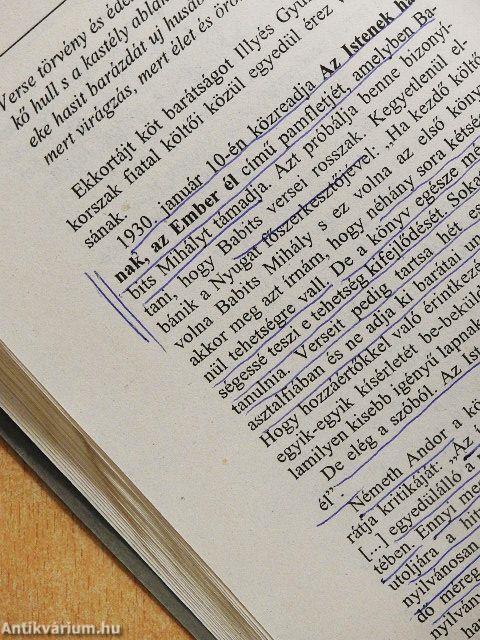 Verse törvény és éde
kő hull s a kastély ablak
eke hasit barázdát uj husáb
mert virágzás, mert élet és örö
Ekkortájt köt barátságot Illyés Gyu
korszak fiatal költői közül egyedül érez v
sának.
1930. január 10-én közreadja Az Istenek ha
nak, az Ember él című pamfletjét, amelyben Ba-
bits Mihályt támadja. Azt próbálja benne bizonyí-
tani, hogy Babits versei rosszak. Kegyetlenül el
bánik a Nyugat főszerkesztőjével: „Ha kezdő költő
volna Babits Mihály s ez volna az első köny
akkor meg azt írnám, hogy néhány sora kétsé
nül tehetségre vall. De a könyv egésze mé
ségessé teszi e tehetség kifejlődését. Soka
tanulnia. Verseit pedig tartsa hét es
asztalfiában és ne adja ki barátai un
Hogy hozzáértőkkel való érintkezé
egyik-egyik kísérletét be-bekül
lamilyen kisebb igényű lapnak
De elég a szóból. Az Ist
él".
Németh Andor a kö
rátja kritikáját: „Az
[...] egyedülálló a
tében. Ennyi meg
utoljára a hit
nyilvánosan
dő méreg
nyilván
ha
Antikvárium.hu